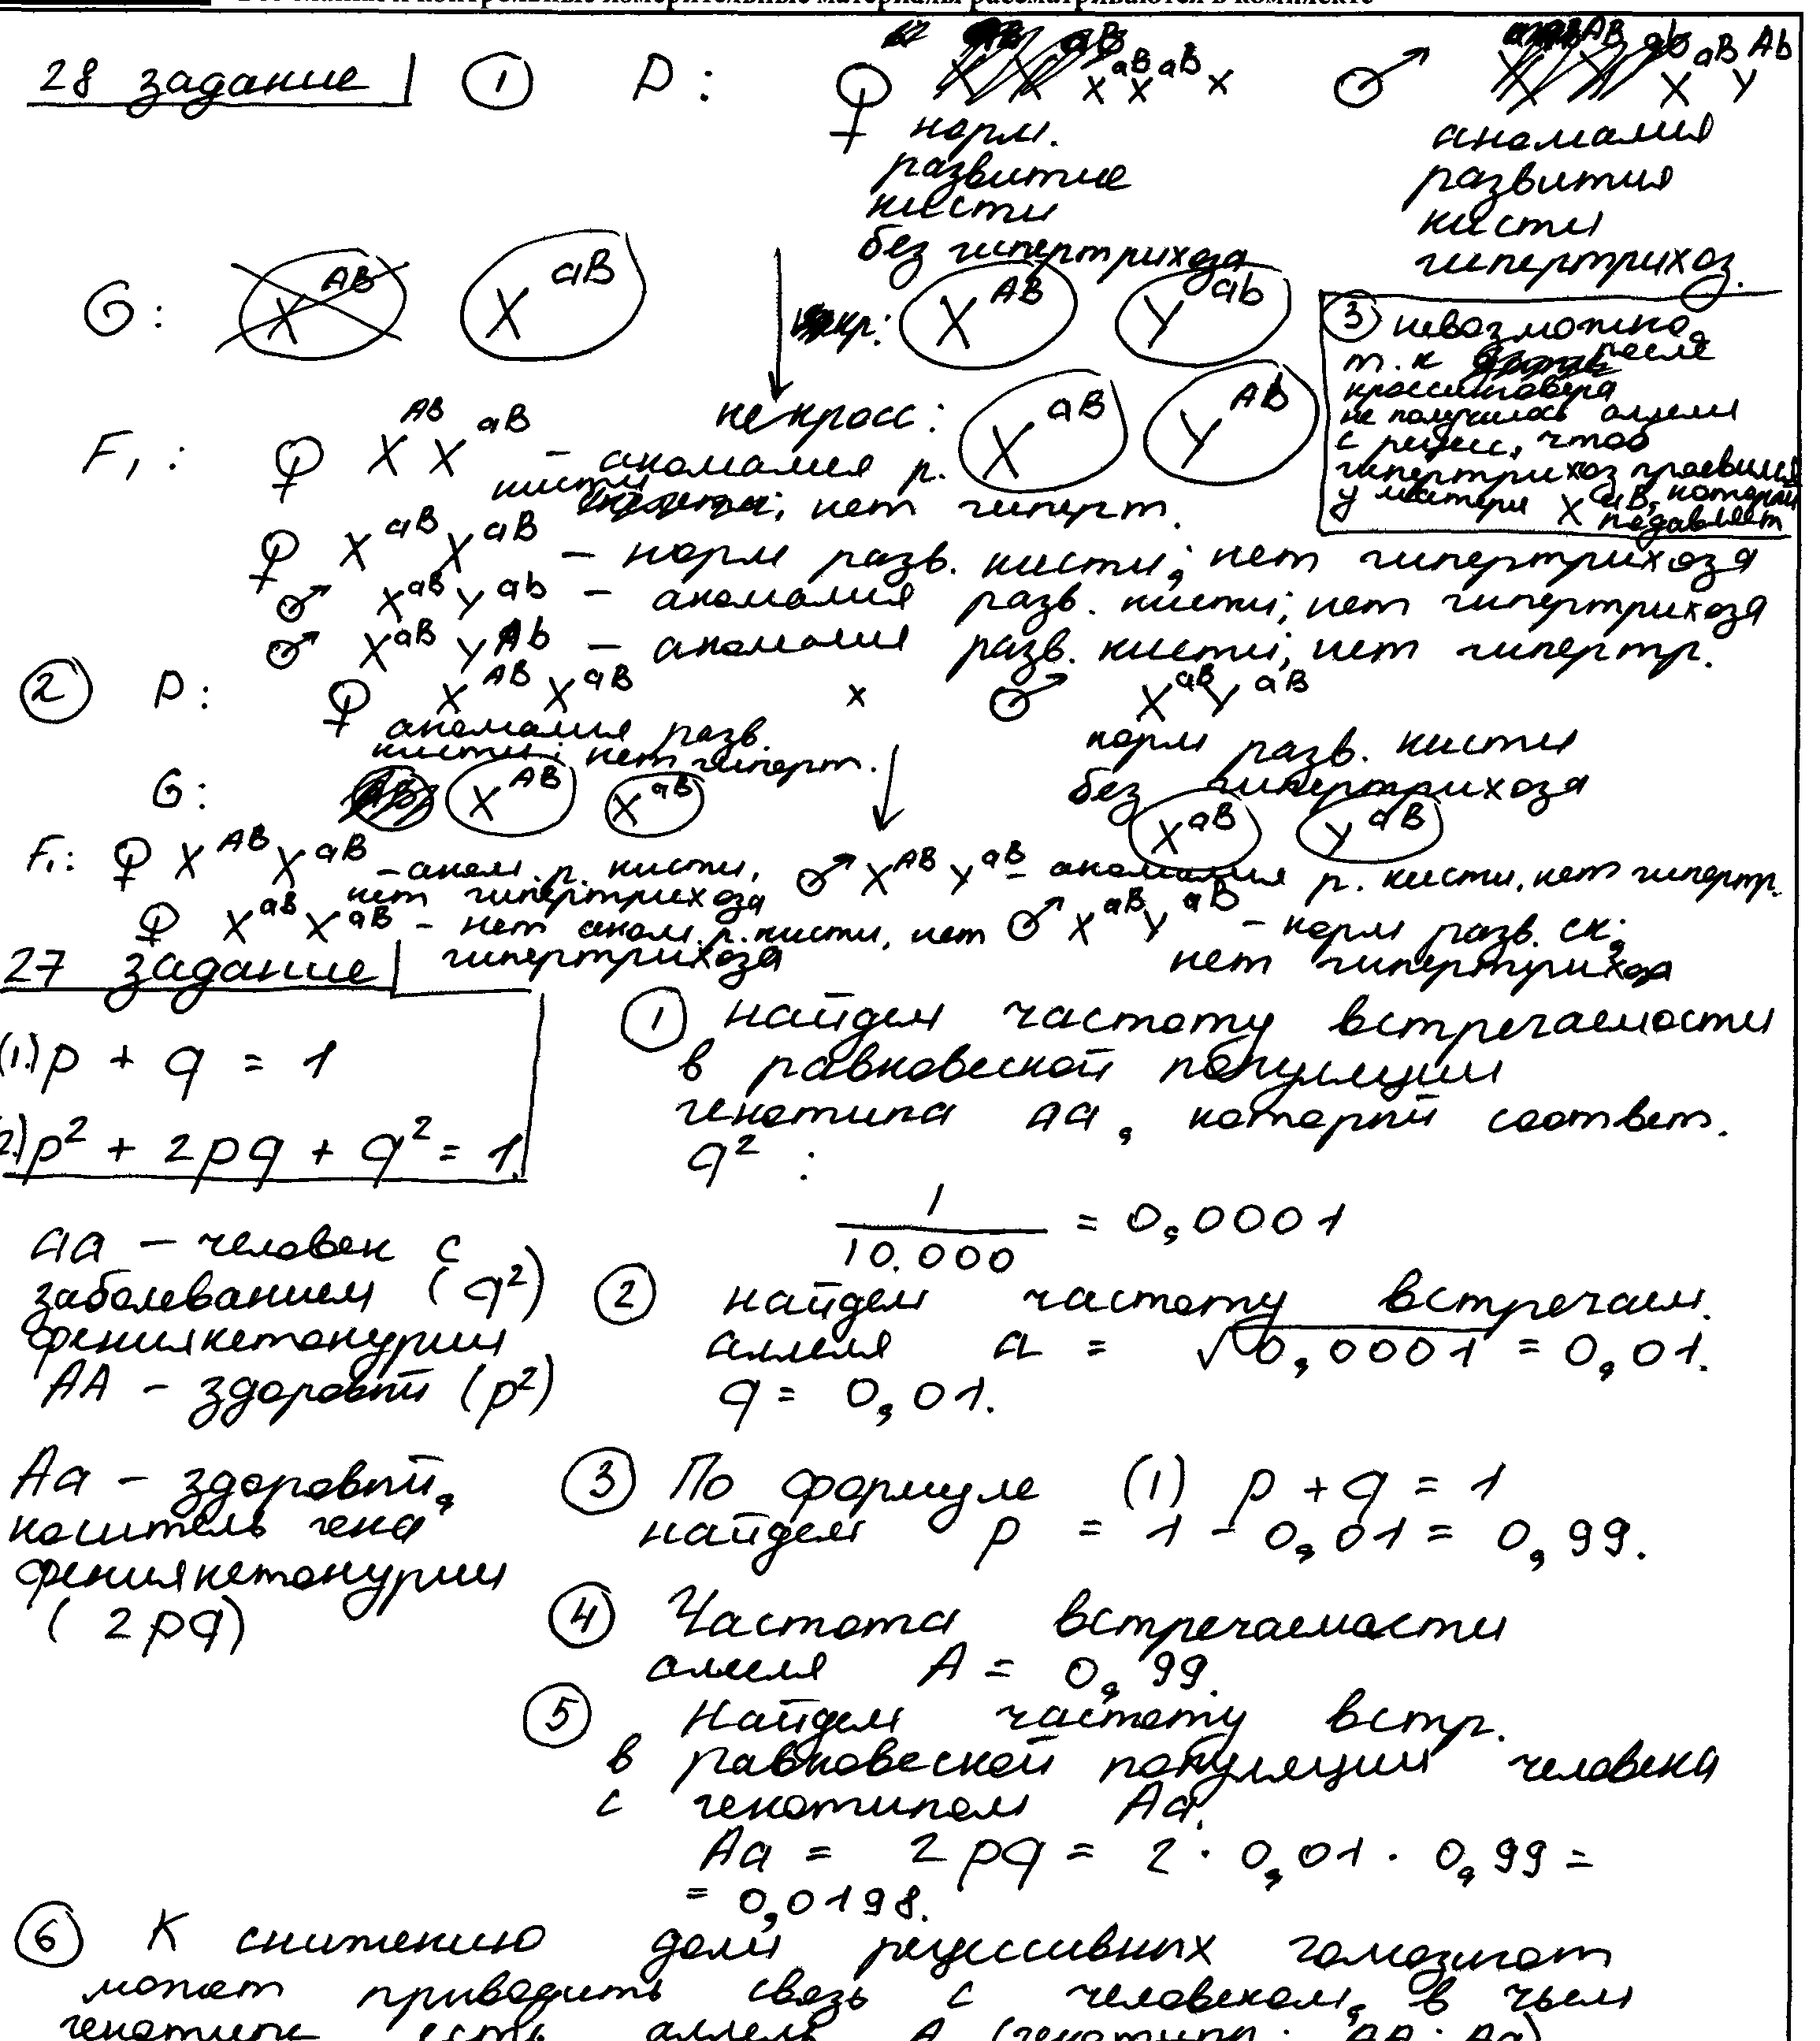 Бланки и контрольные измерительные материалы рассматриваются в комплекте
28 задание
① P: ♀ X^aB X^aB x ♂ X^aB Y^Ab
норм. развитие кисти без гипертрихоза
аномалия развития кисти гипертрихоз.
G: X^AB X^aB кр: X^AB Y^ab
некросс: X^aB Y^Ab
③ невозможно,
т.к после
кроссинговера
не получилось аллели
с рецес, чтоб
гипертрихоз проявился
у матери X^aB, который
подавляет
F₁: ♀ X^AB X^aB – аномалия р.
кисти; нет гиперт.
♀ X^aB X^aB – норм разв. кисти; нет гипертрихоза
♂ X^aB Y^ab – аномалия разв. кисти; нет гипертрихоза
♂ X^aB Y^Ab – аномалия разв. кисти; нет гипертр.
② P: ♀ X^AB X^aB x ♂ X^aB Y^aB
аномалия разв. кисти; нет гиперт.
норм разв. кисти без гипертрихоза
G: X^AB X^aB X^aB Y^aB
F₁: ♀ X^AB X^aB – аном. р. кисти, нет гипертрихоза
♂ X^AB Y^aB – аномалия р. кисти, нет гипертр.
♀ X^aB X^aB – нет аном. р. кисти, нет гипертрихоза
♂ X^aB Y^aB – норм разв. ск; нет гипертрихоза
27 задание
(1.) p + q = 1
2.) p² + 2pq + q² = 1.
aa – человек с
заболеванием (q²)
фенилкетонурии
AA – здоровый (p²)
Aa – здоровый,
носитель гена
фенилкетонурии
(2pq)
① найдем частоту встречаемости
в равновесной популяции
генотипа aa, который соответ.
q² :
1/10.000 = 0,0001
② найдем частоту встречаем.
аллеля a = √0,0001 = 0,01.
q = 0,01.
③ По формуле (1) p + q = 1
найдем p = 1 - 0,01 = 0,99.
④ Частота встречаемости
аллеля A = 0,99.
⑤ Найдем частоту встр.
в равновесной популяции человека
с генотипом Aa.
Aa = 2pq = 2 · 0,01 · 0,99 =
= 0,0198.
⑥ К снижению доли рецессивных гомозигот
может приводить связь с человеком, в чьем
генотипе есть аллель A (генотипы: AA; Aa)